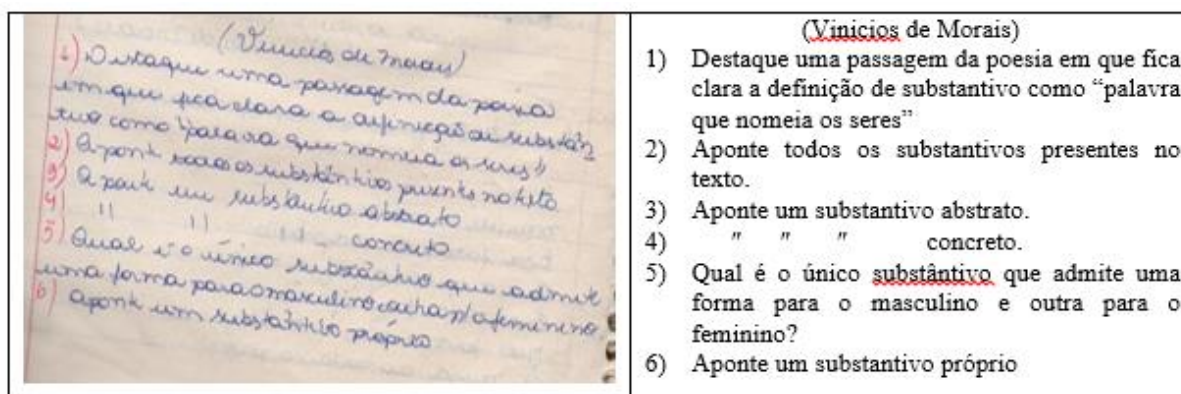 (Vinicis de Morais)
1) Destaque uma passagem da poesia
em que fica clara a definição de substân
tivo como "palavra que nomeia os seres"
2) Aponte todos os substântivos presentes no texto
3) Aponte um substântivo abstrato
4) " " " concreto
5) Qual é o único substântivo que admite
uma forma para o masculino e outra p/ o feminino
6) Aponte um substântivo próprio
(Vinicios de Morais)
1) Destaque uma passagem da poesia em que fica
clara a definição de substantivo como “palavra
que nomeia os seres”
2) Aponte todos os substantivos presentes no
texto.
3) Aponte um substantivo abstrato.
4) " " " concreto.
5) Qual é o único substântivo que admite uma
forma para o masculino e outra para o
feminino?
6) Aponte um substantivo próprio